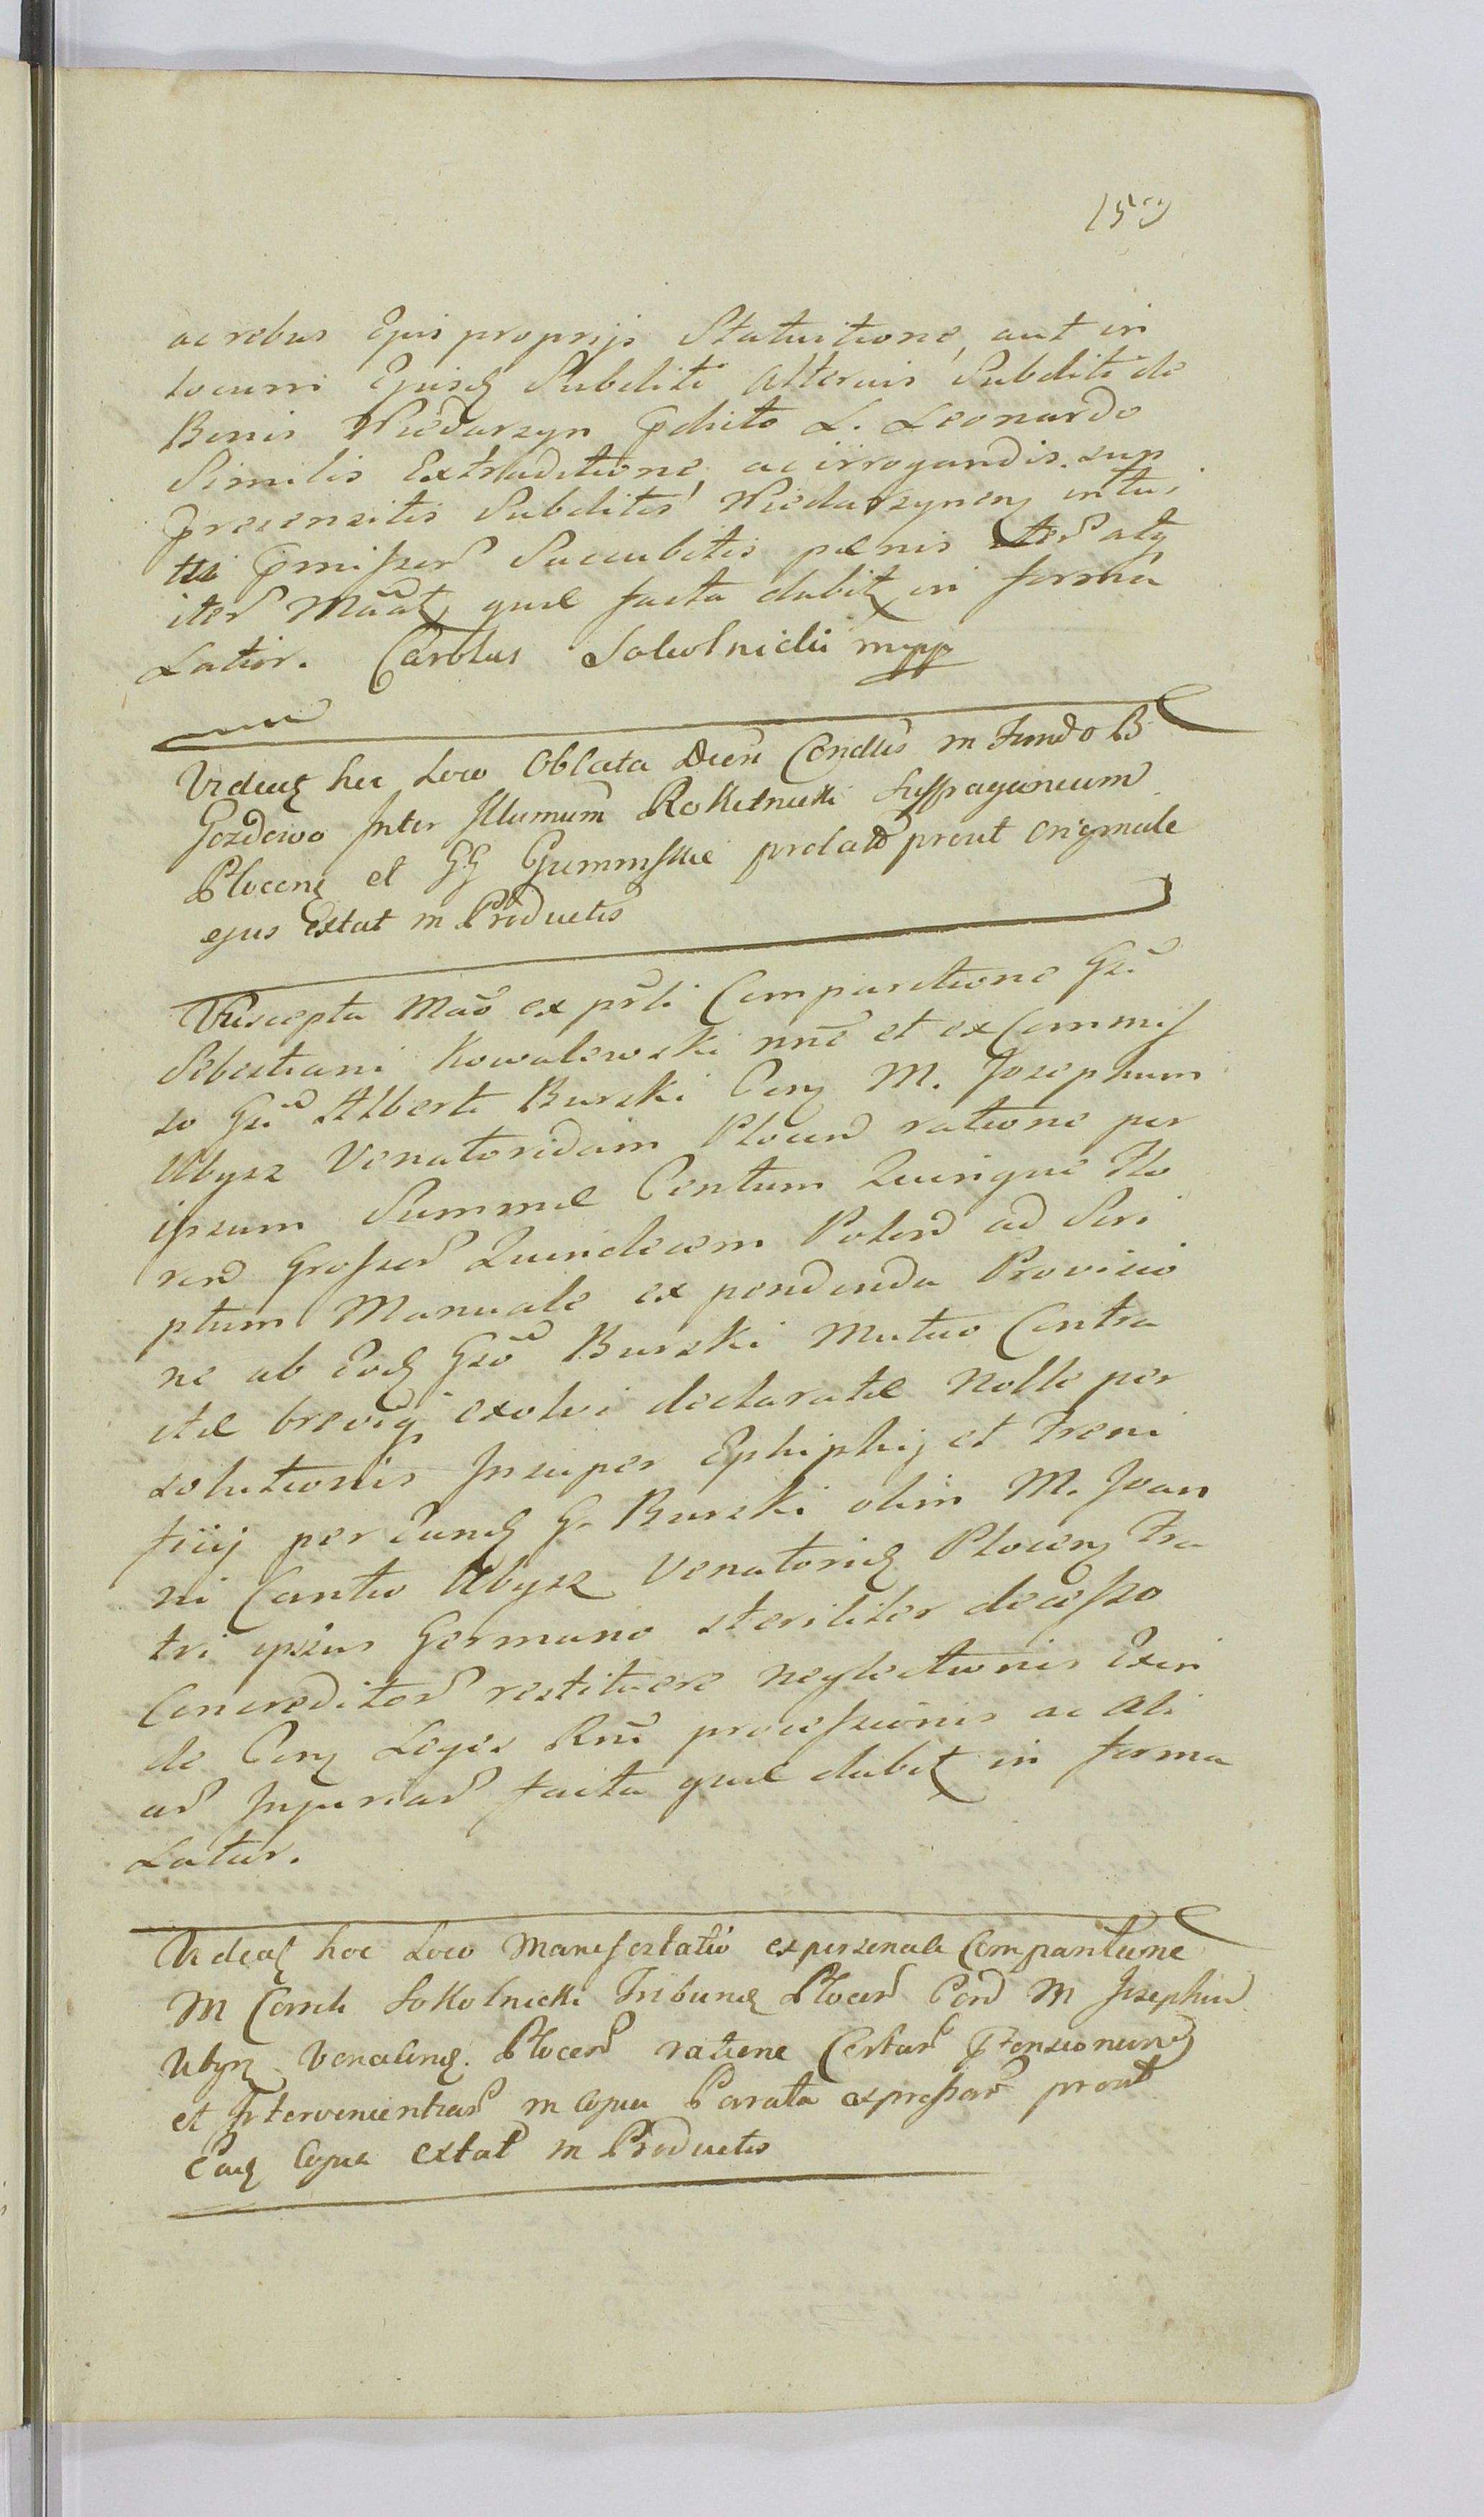 159
ac rebus Ejus proprijs Statuitione, aut in
locum Ejusd Subditi alterius Subditi de
Bonis Niedarzyn pdicto L. Leonardo
Similis Extraditione, ac irrogandis sup
precensitis Subditis Niedarzynen intui
tu pmissor Succubitis pænis
iter Mãt, quæ facta dabit in forma
Latior. Carolus Sokolnicki mpp
Videat hic Loco Oblata Condis in Fundo B
Gozdowo Inter Illumum Rokitnicki Suffraganeum
Plocens et GG Guminskie prolat prout originale
ejus Extat in Productis
Suscepta Mão ex prli Comparitione Gsi
Sebestiani Kowalewski nnẽ et ex Commis
so Gsi Alberti Burski Con M. Josephum
Ubysz Venatoridam Plocen ratione per
ipsum Summæ Centum Quinque Flo
ren Grosser Quindecem Polon ad Scri
ptum Manuale expendenda Provisio
ne ab Eod Gso Burski Mutuo Contra
ctæ brevig exolvi declaratæ Nolle per
solutionis Insuper Ephiphij et Freni
sui per Eund G. Burski olim M. Joan
ni Cantio Ubysz Venatorid Plocen Fra
tri ipsius Germano steriliter decesso
Concreditor restituere neglectionis Exin
de Con Leges Rni processionis ac ali
ar Injuriar facta quæ dabit in forma
Latior.
Videat hoc Loco Manifestatio ex personali Comparitione
M Caroli Sokolnicki Tribunid Plocen Con M Josephum
Ubysz Plocen ratione Certar Ptensionum
et Intervenientiar in Copia Parata expressar prout
Ead Copia extat in Productis